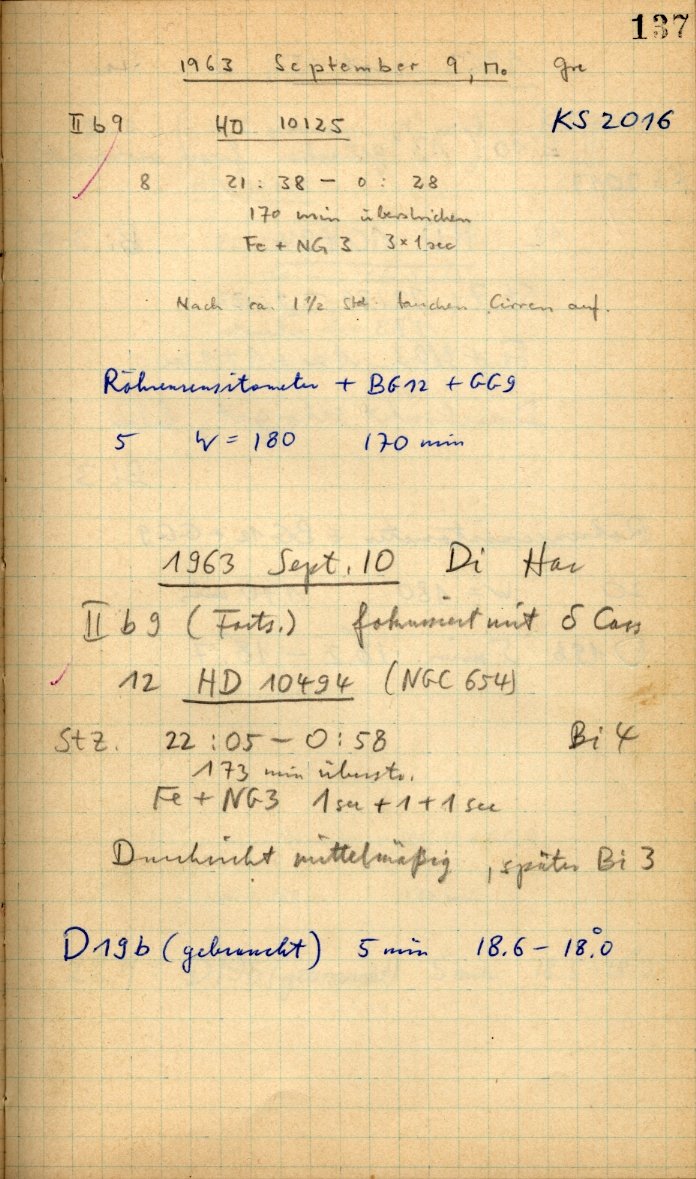 137
1963 September 9, Mo. Gre
II b 9 HD 10125 KS 2016
8 21 : 38 - 0 : 28
170 min überstrichen
Fe + NG 3 3 × 1 sec
Nach ca. 1 1/2 Std. tauchen Cirren auf.
Röhrensensitometer + BG 12 + GG 9
5 W = 180 170 min
1963 Sept. 10 Di Hau
II b 9 (Forts.) fokussiert mit δ Cass
12 HD 10494 (NGC 654)
Stz. 22 : 05 - 0 : 58 Bi 4
173 min überstr.
Fe + NG3 1 sec + 1 + 1 sec
Durchsicht mittelmäßig, später Bi 3
D 19 b (gebraucht) 5 min 18.6 - 18.°0